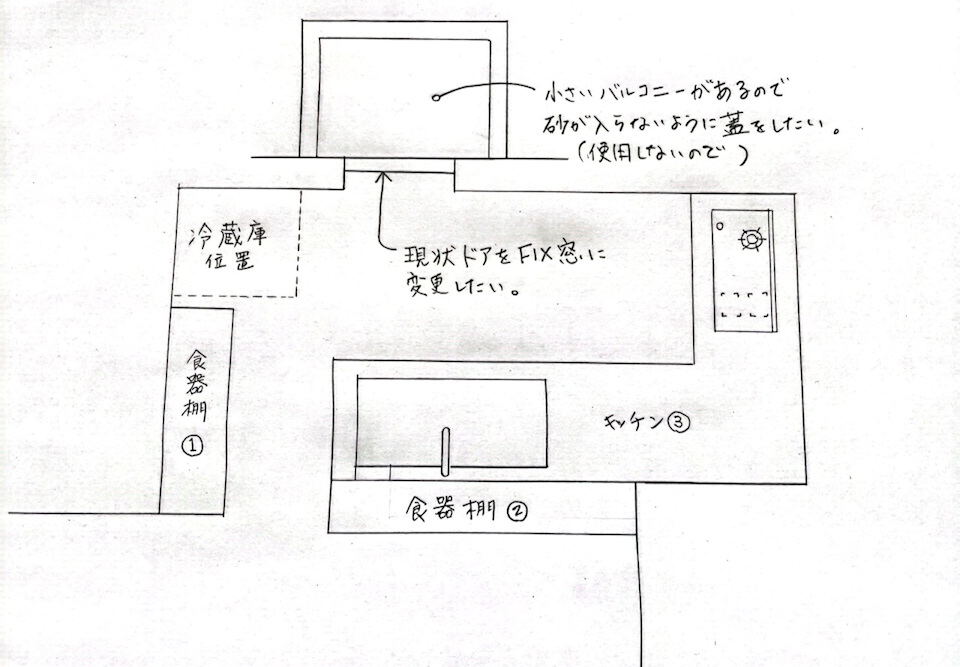 小さいバルコニーがあるので
砂が入らないように蓋をしたい。
(使用しないので)
冷蔵庫
位置
現状ドアをFIX窓に
変更したい。
食器棚
①
キッチン③
食器棚②